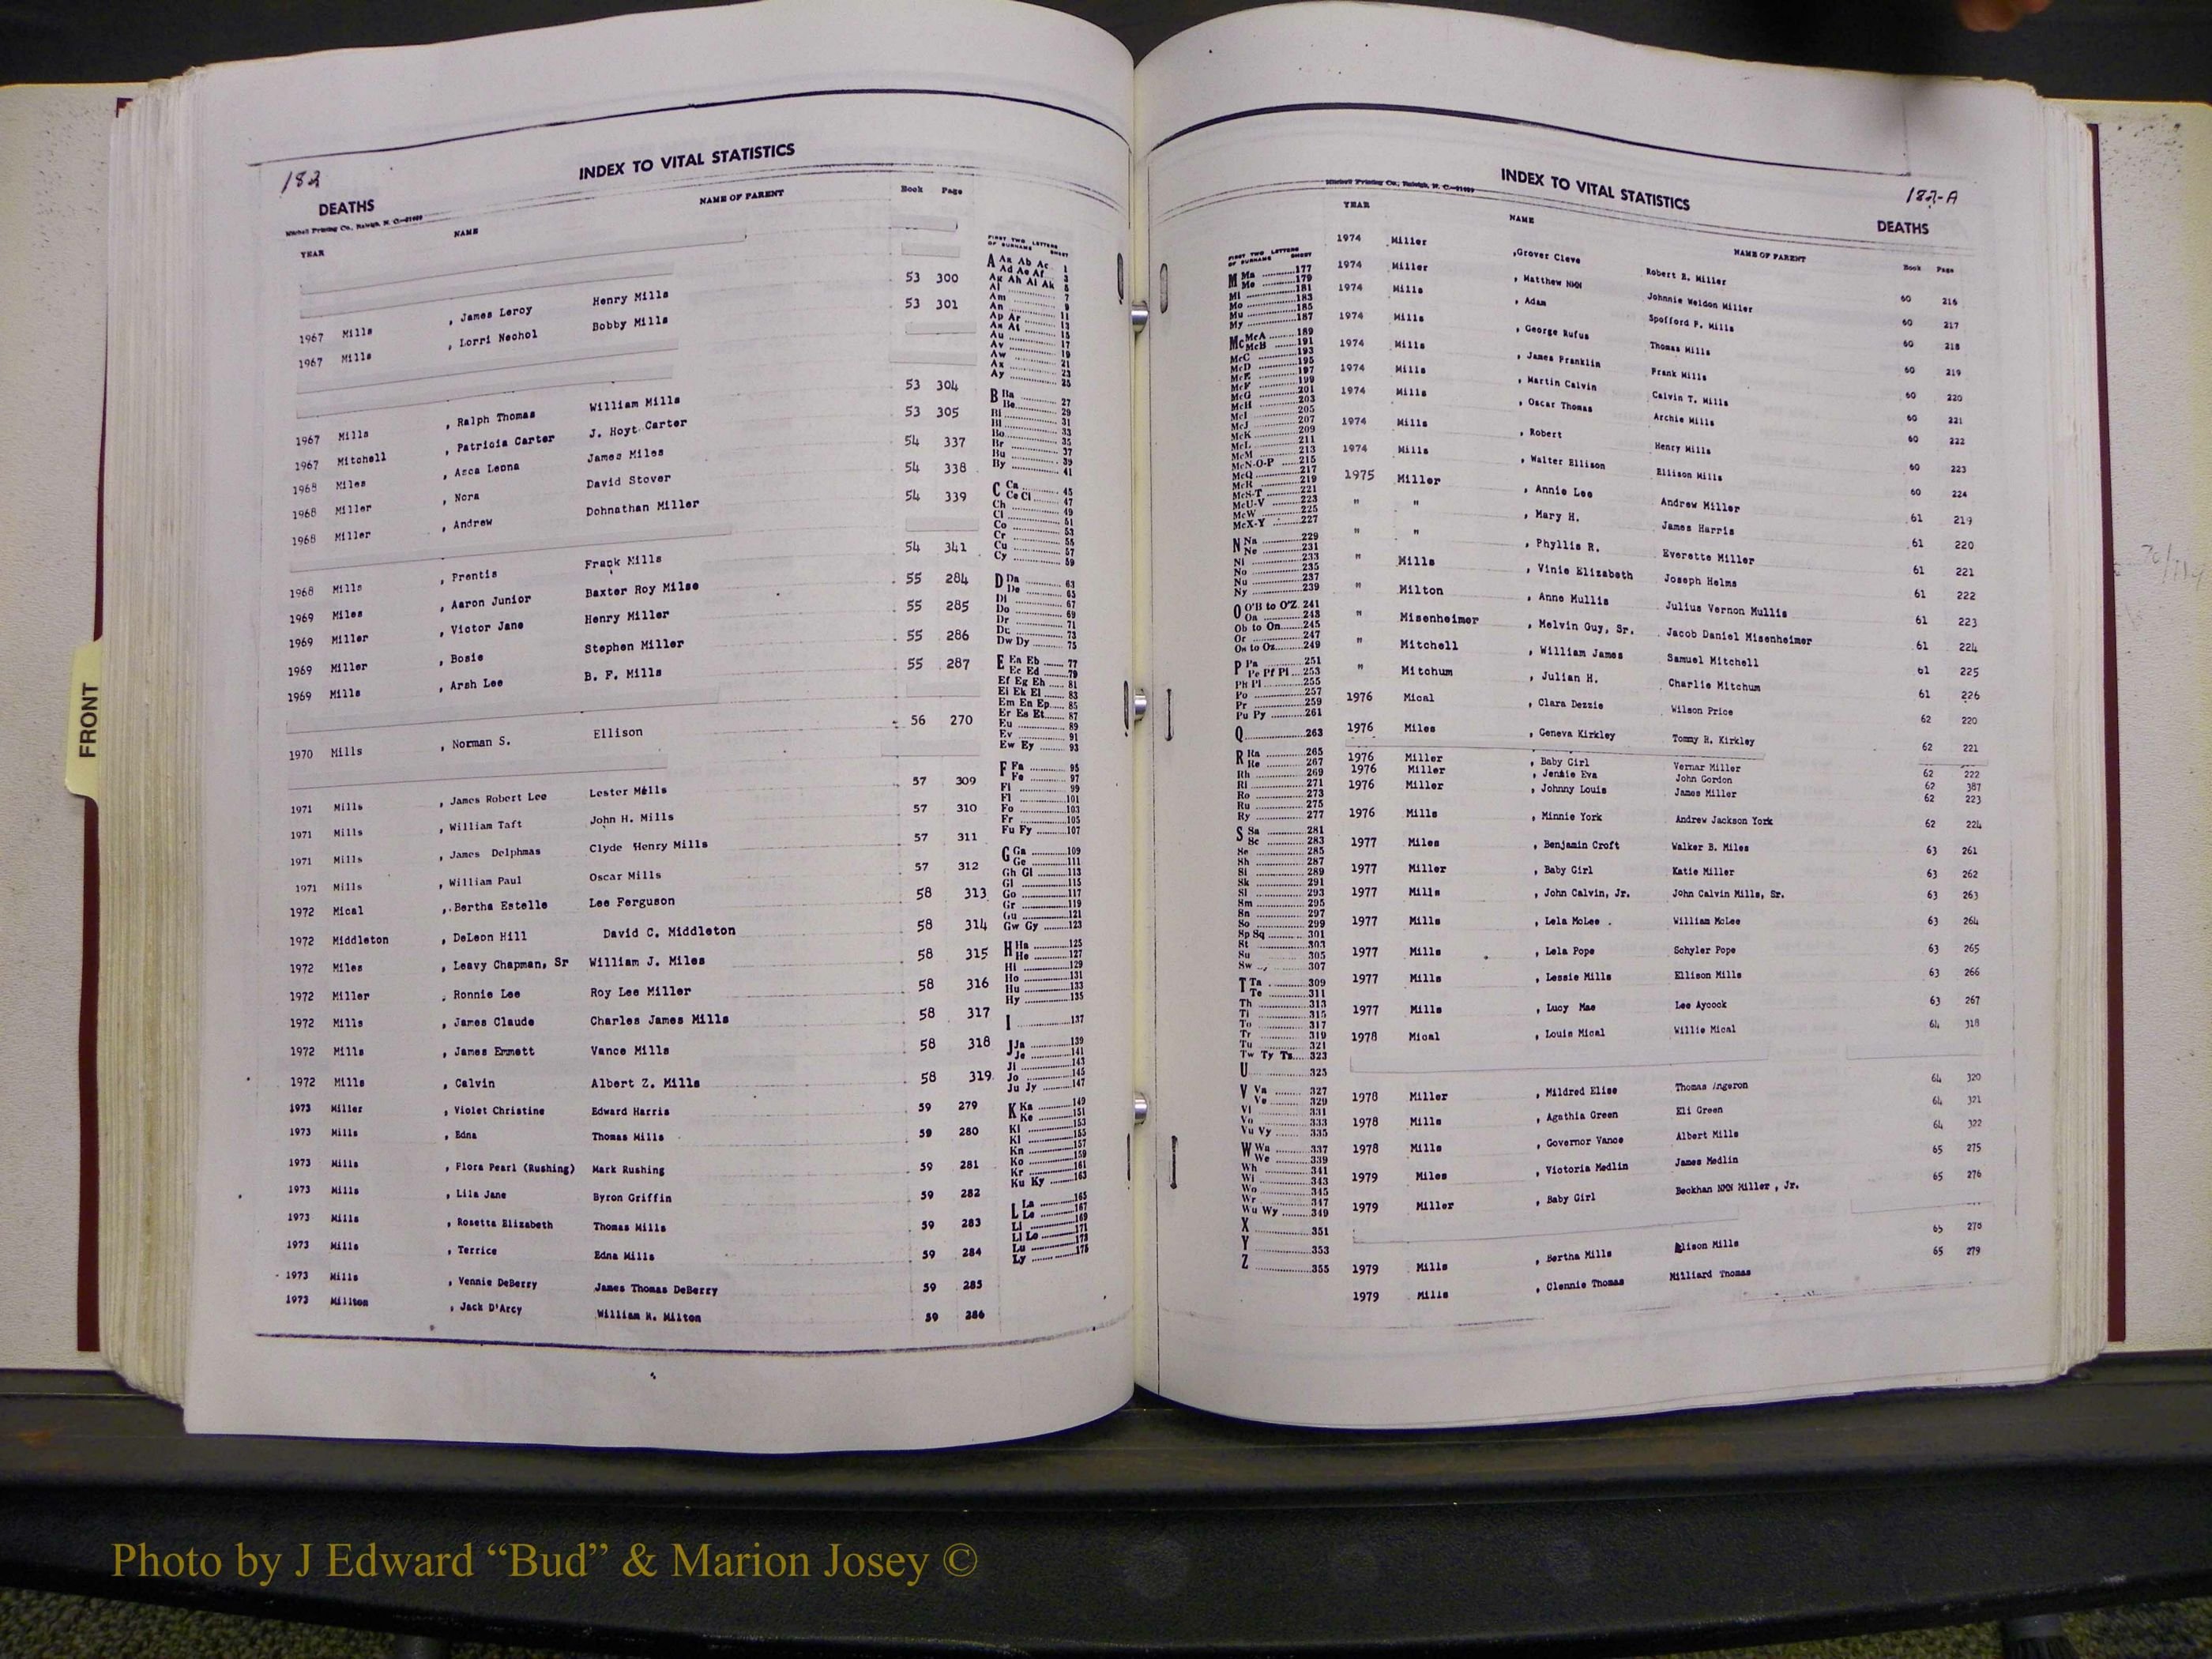 182
INDEX TO VITAL STATISTICS
DEATHS
Mitchell Printing Co., Raleigh, N. C.
YEAR NAME NAME OF PARENT Book Page
1967 Mills , James Leroy Henry Mills 53 300
1967 Mills , Lorri Nechol Bobby Mills 53 301
1967 Mills , Ralph Thomas William Mills 53 304
1967 Mitchell , Patricia Carter J. Hoyt Carter 53 305
1968 Miles , Asca Leona James Miles 54 337
1968 Miller , Nora David Stover 54 338
1968 Miller , Andrew Dohnathan Miller 54 339
1968 Mills , Prentis Frank Mills 54 341
1969 Miles , Aaron Junior Baxter Roy Milse 55 284
1969 Miller , Victor Jane Henry Miller 55 285
1969 Miller , Bosie Stephen Miller 55 286
1969 Mills , Arsh Lee B. F. Mills 55 287
1970 Mills , Norman S. Ellison 56 270
1971 Mills , James Robert Lee Lester Mills 57 309
1971 Mills , William Taft John H. Mills 57 310
1971 Mills , James Delphmas Clyde Henry Mills 57 311
1971 Mills , William Paul Oscar Mills 57 312
1972 Mical , Bertha Estelle Lee Ferguson 58 313
1972 Middleton , DeLeon Hill David C. Middleton 58 314
1972 Miles , Leavy Chapman, Sr William J. Miles 58 315
1972 Miller , Ronnie Lee Roy Lee Miller 58 316
1972 Mills , James Claude Charles James Mills 58 317
1972 Mills , James Emmett Vance Mills 58 318
1972 Mills , Calvin Albert Z. Mills 58 319
1973 Miller , Violet Christine Edward Harris 59 279
1973 Mills , Edna Thomas Mills 59 280
1973 Mills , Flora Pearl (Rushing) Mark Rushing 59 281
1973 Mills , Lila Jane Byron Griffin 59 282
1973 Mills , Rosetta Elizabeth Thomas Mills 59 283
1973 Mills , Terrice Edna Mills 59 284
1973 Mills , Vennie DeBerry James Thomas DeBerry 59 285
1973 Millton , Jack D'Arcy William H. Milton 59 286
FIRST TWO LETTERS
OF SURNAME SHEET
A Aa Ab Ac 1
Ad Ae Af 3
Ag Ah Ai Ak 5
Al 7
Am 9
An 11
Ap Ar 13
As At 15
Au 17
Av 19
Aw 21
Ax 23
Ay 25
B Ba 27
Be 29
Bi 31
Bl 33
Bo 35
Br 37
Bu 39
By 41
C Ca 45
Ce Ci 47
Ch 49
Cl 51
Co 53
Cr 55
Cu 57
Cy 59
D Da 63
De 65
Di 67
Do 69
Dr 71
Du 73
Dw Dy 75
E Ea Eb 77
Ec Ed 79
Ef Eg Eh 81
Ei Ek El 83
Em En Ep 85
Er Es Et 87
Eu 89
Ev 91
Ew Ey 93
F Fa 95
Fe 97
Fi 99
Fl 101
Fo 103
Fr 105
Fu Fy 107
G Ga 109
Ge 111
Gh Gi 113
Gl 115
Go 117
Gr 119
Gu 121
Gw Gy 123
H Ha 125
He 127
Hi 129
Ho 131
Hu 133
Hy 135
I 137
J Ja 139
Je 141
Ji 143
Jo 145
Ju Jy 147
K Ka 149
Ke 151
Ki 153
Kl 155
Kn 157
Ko 159
Kr 161
Ku Ky 163
L La 165
Le 167
Li 169
Ll Lo 171
Lu 173
Ly 175
FRONT
182-A
INDEX TO VITAL STATISTICS
Mitchell Printing Co., Raleigh, N. C.
DEATHS
FIRST TWO LETTERS
OF SURNAME SHEET
M Ma 177
Me 179
Mi 181
Mo 183
Mu 185
My 187
Mc McA 189
McB 191
McC 193
McD 195
McE 197
McF 199
McG 201
McH 203
McI 205
McJ 207
McK 209
McL 211
McM 213
McN-O-P 215
McQ 217
McR 219
McS-T 221
McU-V 223
McW 225
McX-Y 227
N Na 229
Ne 231
Ni 233
No 235
Nu 237
Ny 239
O O'B to O'Z 241
Oa 243
Ob to On 245
Or 247
Os to Oz 249
P Pa 251
Pe Pf Pl 253
Ph Pi 255
Po 257
Pr 259
Pu Py 261
Q 263
R Ra 265
Re 267
Rh 269
Ri 271
Ro 273
Ru 275
Ry 277
S Sa 281
Sc 283
Se 285
Sh 287
Si 289
Sk 291
Sl 293
Sm 295
Sn 297
So 299
Sp Sq 301
St 303
Su 305
Sw 307
T Ta 309
Te 311
Th 313
Ti 315
To 317
Tr 319
Tu 321
Tw Ty Tz 323
U 325
V Va 327
Ve 329
Vi 331
Vo 333
Vu Vy 335
W Wa 337
We 339
Wh 341
Wi 343
Wo 345
Wr 347
Wu Wy 349
X 351
Y 353
Z 355
YEAR NAME NAME OF PARENT Book Page
1974 Miller ,Grover Cleve Robert E. Miller 60 216
1974 Miller , Matthew NMN Johnnie Weldon Miller 60 217
1974 Mills , Adam Spofford P. Mills 60 218
1974 Mills , George Rufus Thomas Mills 60 219
1974 Mills , James Franklin Frank Mills 60 220
1974 Mills , Martin Calvin Calvin T. Mills 60 221
1974 Mills , Oscar Thomas Archie Mills 60 222
1974 Mills , Robert Henry Mills 60 223
1974 Mills , Walter Ellison Ellison Mills 60 224
1975 Miller , Annie Lee Andrew Miller 61 219
" " , Mary H. James Harris 61 220
" " , Phyllis R. Everette Miller 61 221
" Mills , Vinie Elizabeth Joseph Helms 61 222
" Milton , Anne Mullis Julius Vernon Mullis 61 223
" Misenheimer , Melvin Guy, Sr. Jacob Daniel Misenheimer 61 224
" Mitchell , William James Samuel Mitchell 61 225
" Mitchum , Julian H. Charlie Mitchum 61 226
1976 Mical , Clara Dezzie Wilson Price 62 220
1976 Miles , Geneva Kirkley Tommy R. Kirkley 62 221
1976 Miller , Baby Girl Vernar Miller 62 222
1976 Miller , Jennie Eva John Gordon 62 387
1976 Miller , Johnny Louis James Miller 62 223
1976 Mills , Minnie York Andrew Jackson York 62 224
1977 Miles , Benjamin Croft Walker B. Miles 63 261
1977 Miller , Baby Girl Katie Miller 63 262
1977 Mills , John Calvin, Jr. John Calvin Mills, Sr. 63 263
1977 Mills , Lela McLee William McLee 63 264
1977 Mills , Lela Pope Schyler Pope 63 265
1977 Mills , Lessie Mills Ellison Mills 63 266
1977 Mills , Lucy Mae Lee Aycock 63 267
1978 Mical , Louis Mical Willie Mical 64 318
1978 Miller , Mildred Elise Thomas Angeron 64 320
1978 Mills , Agathia Green Eli Green 64 321
1978 Mills , Governor Vance Albert Mills 64 322
1979 Miles , Victoria Medlin James Medlin 65 275
1979 Miller , Baby Girl Beckhan NMN Miller , Jr. 65 276
1979 Mills , Bertha Mills Alison Mills 65 278
1979 Mills , Clennie Thomas Milliard Thomas 65 279
Photo by J Edward “Bud” & Marion Josey ©